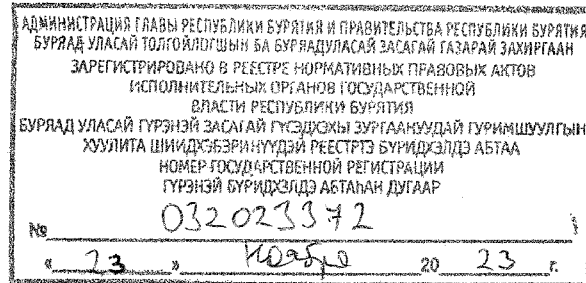 АДМИНИСТРАЦИЯ ГЛАВЫ РЕСПУБЛИКИ БУРЯТИЯ И ПРАВИТЕЛЬСТВА РЕСПУБЛИКИ БУРЯТИЯ
БУРЯАД УЛАСАЙ ТОЛГОЙЛОГШЫН БА БУРЯАД УЛАСАЙ ЗАСАГАЙ ГАЗАРАЙ ЗАХИРГААН
ЗАРЕГИСТРИРОВАНО В РЕЕСТРЕ НОРМАТИВНЫХ ПРАВОВЫХ АКТОВ
ИСПОЛНИТЕЛЬНЫХ ОРГАНОВ ГОСУДАРСТВЕННОЙ
ВЛАСТИ РЕСПУБЛИКИ БУРЯТИЯ
БУРЯАД УЛАСАЙ ГҮРЭНЭЙ ЗАСАГАЙ ГҮЙСЭДХЭХЫ ЗУРГААНУУДАЙ ГУРИМШУУЛГЫН
ХУУЛИТА ШИИДХЭБЭРИНҮҮДЭЙ РЕЕСТРТЭ БҮРИДХЭЛДЭ АБТАА
НОМЕР ГОСУДАРСТВЕННОЙ РЕГИСТРАЦИИ
ГҮРЭНЭЙ БҮРИДХЭЛДЭ АБТАҺАН ДУГААР
№ 032023372
« 23 » Ноября 20 23 г.